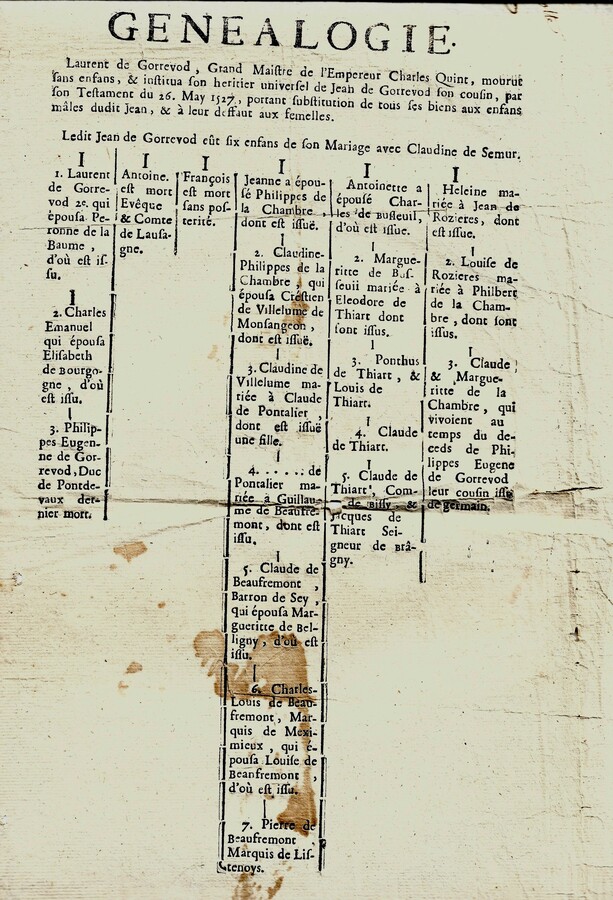 GENEALOGIE.
Laurent de Gorrevod, Grand Maiſtre de l'Empereur Charles Quint, mourut
ſans enfans, & inſtitua ſon heritier univerſel de Jean de Gorrevod ſon couſin, par
ſon Teſtament du 26. May 1527, portant ſubſtitution de tous ſes biens aux enfans
mâles dudit Jean, & à leur deffaut aux femelles.
Ledit Jean de Gorrevod eût ſix enfans de ſon Mariage avec Claudine de Semur.
I
1. Laurent
de Gorre-
vod 2e. qui
épouſa Pe-
ronne de la
Baume,
d'où eſt iſ-
ſu.
I
2. Charles
Emanuel
qui épouſa
Eliſabeth
de Bourgo-
gne, d'où
eſt iſſu.
I
3. Philip-
pes Eugen-
ne de Gor-
revod, Duc
de Pontde-
vaux der-
nier mort.
I
Antoine.
eſt mort
Evêque
& Comte
de Lauſa-
gne.
I
François
eſt mort
ſans poſ-
terité.
I
Jeanne a épou-
ſé Philippes de
la Chambre,
dont eſt iſſuë.
I
2. Claudine-
Philippes de la
Chambre, qui
épouſa Créſtien
de Villelume de
Monſangeon,
dont eſt iſſuë.
I
3. Claudine de
Villelume ma-
riée à Claude
de Pontalier,
dont eſt iſſuë
une fille.
I
4. . . . . . de
Pontalier ma-
riée à Guillau-
me de Beaufre-
mont, dont eſt
iſſu.
I
5. Claude de
Beaufremont,
Barron de Sey,
qui épouſa Mar-
gueritte de Bel-
ligny, d'où eſt
iſſu.
I
6. Charles-
Louis de Beau-
fremont, Mar-
quis de Mexi-
mieux, qui é-
pouſa Louiſe de
Beanfremont,
d'où eſt iſſu.
I
7. Pierre de
Beaufremont
Marquis de Liſ-
tenoys.
I
Antoinette a
épouſé Char-
les de Buſleuil,
d'où eſt iſſue.
I
2. Margue-
ritte de Buſ-
ſeuii mariée à
Eleodore de
Thiart dont
ſont iſſus.
I
3. Ponthus
de Thiart, &
Louis de
Thiart.
I
4. Claude
de Thiart.
I
5. Claude de
Thiart, Com-
de Biſſy, &
Jacques de
Thiart Sei-
gneur de Brâ-
gny.
I
Heleine ma-
riée à Jean de
Rozieres, dont
eſt iſſue.
I
2. Louiſe de
Rozieres ma-
riée à Philbert
de la Cham-
bre, dont ſont
iſſus.
I
3. Claude
& Margue-
ritte de la
Chambre, qui
vivoient au
temps du de-
ceds de Phi-
lippes Eugene
de Gorrevod
leur couſin iſſu
de germain.